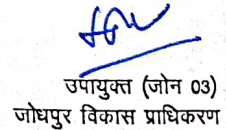 उपायुक्त (जोन 03)
जोधपुर विकास प्राधिकरण